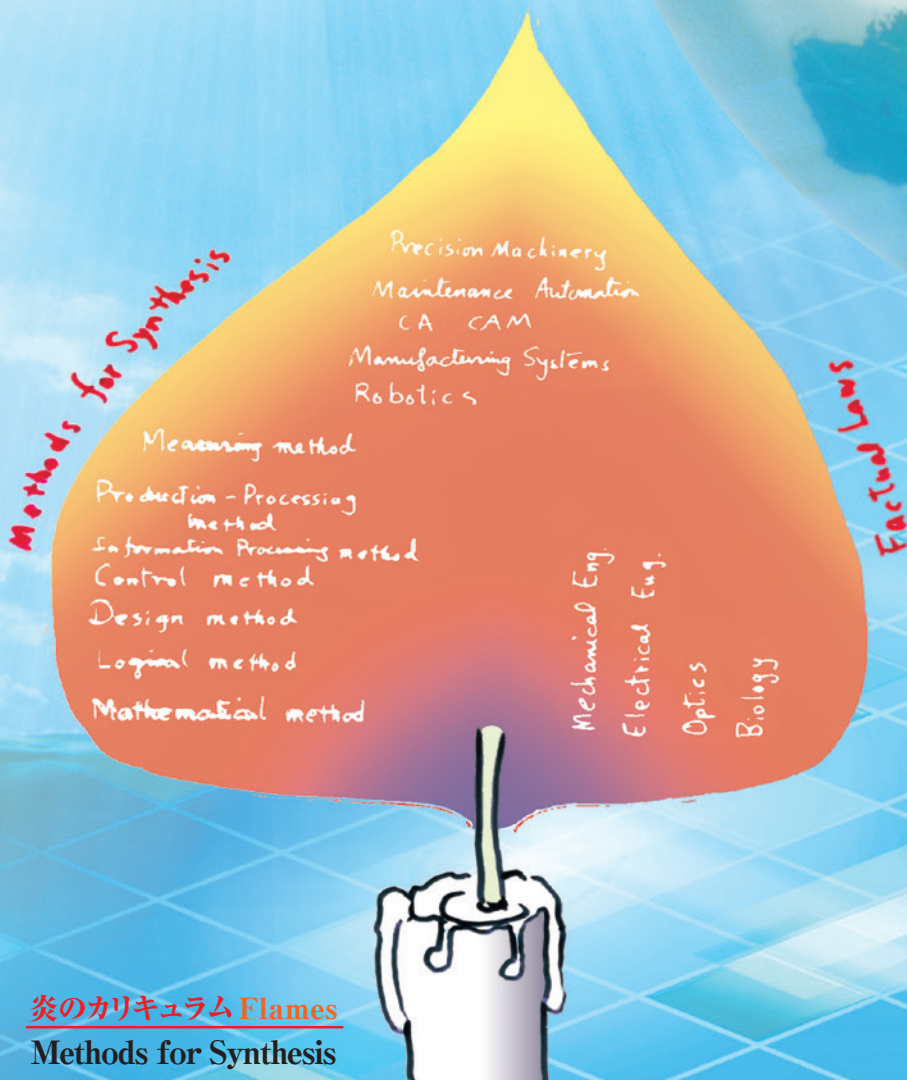 Precision Machinery
Maintenance Automation
CA CAM
Manufacturing Systems
Robotics
Methods for Synthesis
Measuring method
Production-Processing
method
Information Processing method
Control method
Design method
Logical method
Mathematical method
Mechanical Eng.
Electrical Eng.
Optics
Biology
Factual Laws
炎のカリキュラム Flames
Methods for Synthesis